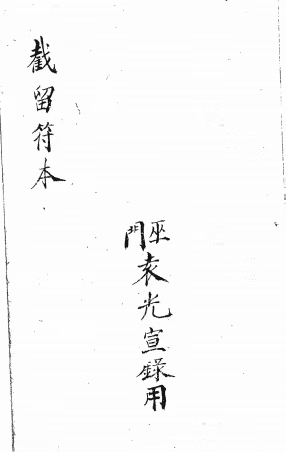 截留符本
巫門袁光宣錄用